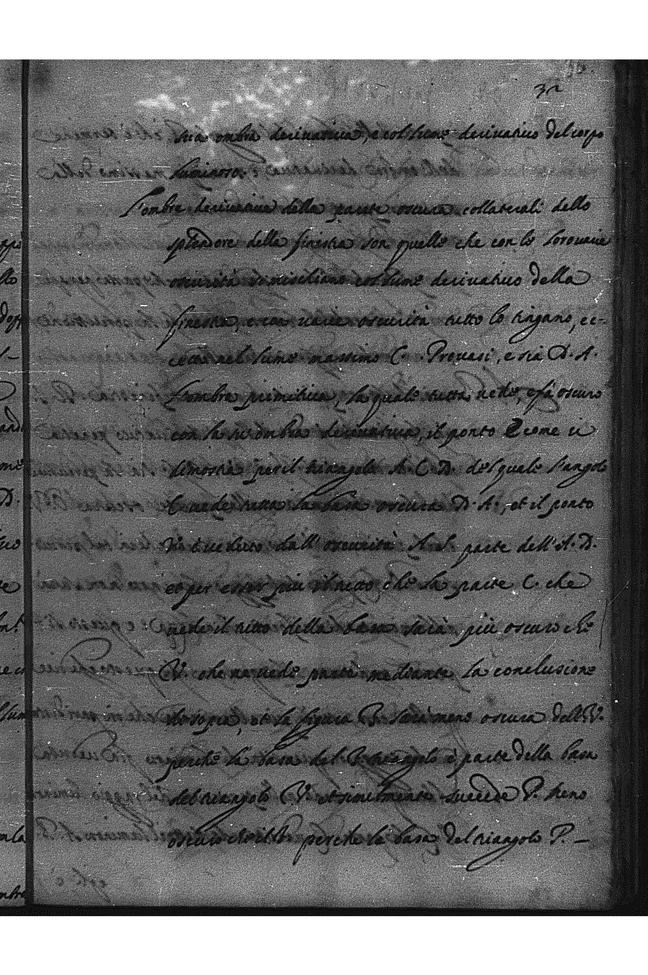 32
sua ombra derivativa, e col lume derivativo del corpo
luminoso.
L'ombre derivative della parte oscura collaterali dello
splendore della finestra son quelle che con le loro varie
oscurità si misciano col lume derivativo della
finestra, e con varie oscurità tutto lo tingano, ec-
cetto nel lume massimo C. Provasi, e sia D. A.
l'ombra primitiva, la quale tutta vede, e fà oscuro
con la su ombra derivativa, il ponto E come si
dimostra per il triangolo A. C. D. del quale l'angolo
C vede tutta la basa oscura D. A., et il ponto
V è veduto dall'oscurità A. S. parte dell'A. D.
et per esser più il tutto che la parte C. che
vede il tutto della basa sarà più oscuro che
V. che ne vede parte mediante la conclusione
di sopra, et la figura P. sarà meno oscura dell'V.
perche la basa del triangolo è parte della basa
del triangolo V. et similmente succede P. meno
oscuro perche la basa del triangolo P. –